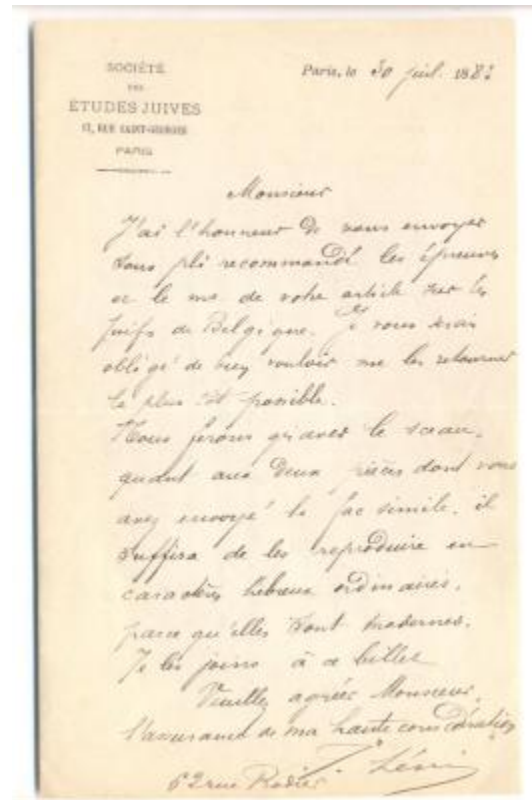 SOCIÉTÉ
DES
ÉTUDES JUIVES
17, RUE SAINT-GEORGES
PARIS
Paris, le 30 juil. 1883
Monsieur
J'ai l'honneur de vous envoyer
sous pli recommandé les épreuves
et le ms. de votre article sur les
Juifs de Belgique. Je vous serais
obligé de vouloir me les retourner
le plus tôt possible.
Nous ferons graver le sceau,
quant aux deux pièces dont vous
avez envoyé le fac simile, il
suffira de les reproduire en
caractères hébreux ordinaires,
parce qu'elles sont modernes.
Je les joins à ce billet
Veuillez agréer Monsieur,
l'assurance de ma haute considération
Lévi
62 rue Rodier